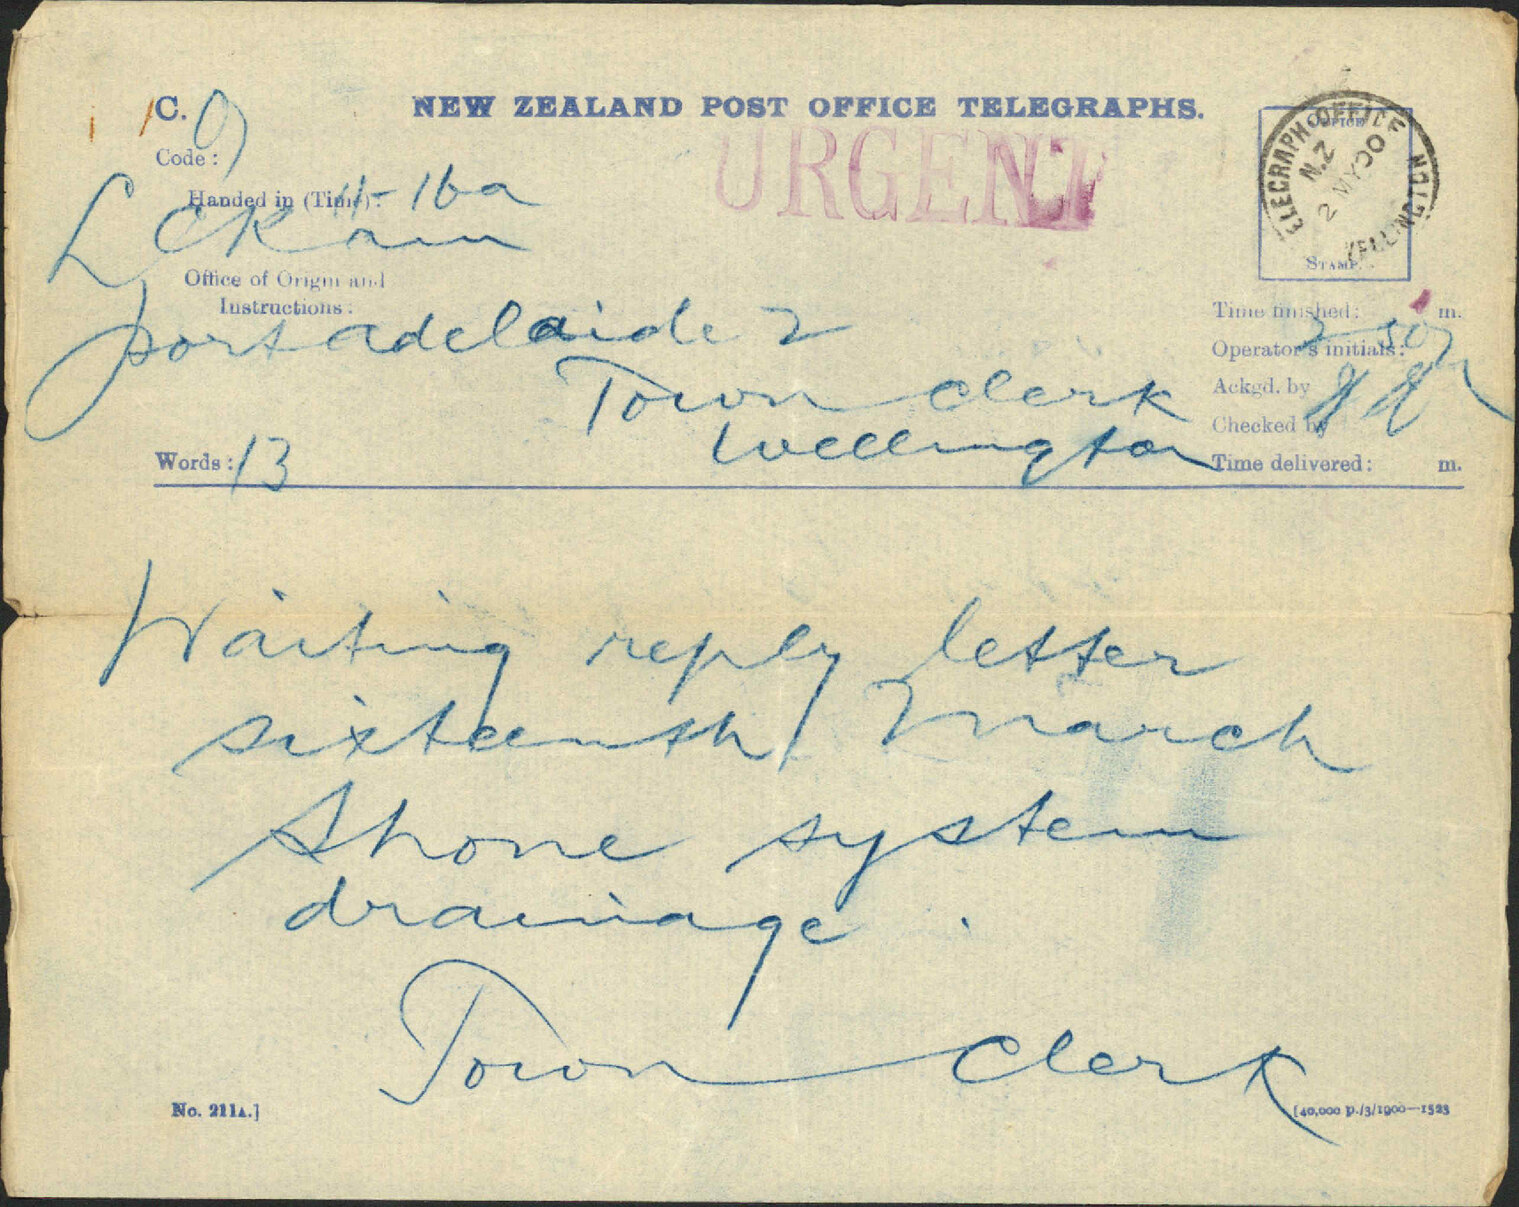 C.
NEW ZEALAND POST OFFICE TELEGRAPHS.
URGENT
TELEGRAPH OFFICE
N.Z
2 MY 00
WELLINGTON
OFFICE
STAMP.
Code:
Handed in (Time): 11-16a
Office of Origin and
Instructions:
Portadelaide 2
Time finished: m.
Operator's initials:
Ackgd. by
Checked by
Town Clerk
Wellington
Words: 13
Time delivered: m.
Waiting reply letter
sixteenth March
Shone system
drainage.
Town Clerk
No. 211A.]
[40,000 p./3/1900—1523